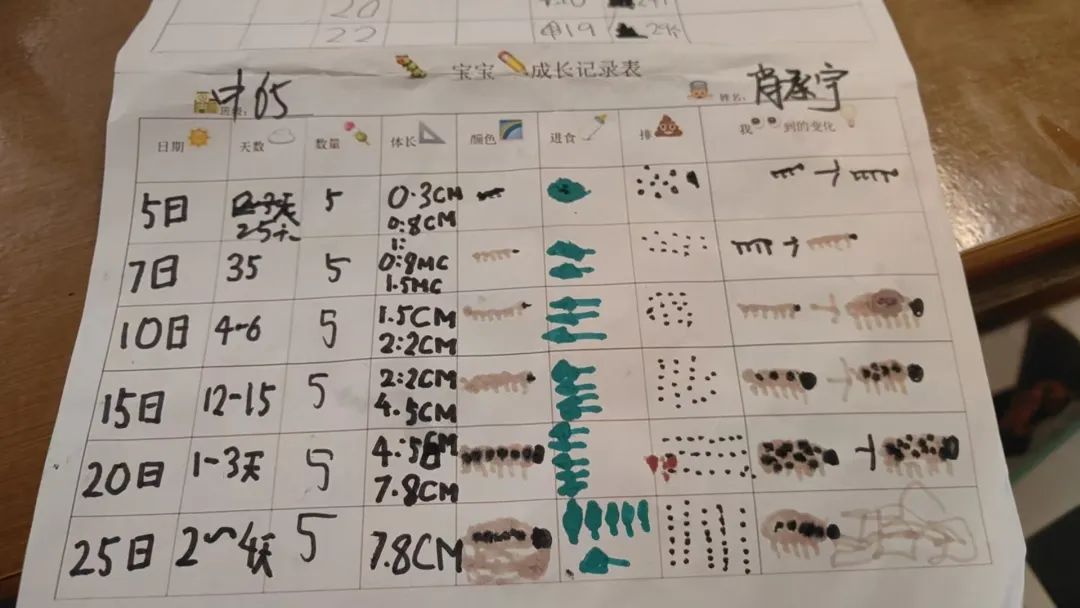 20
22
19
宝宝 成长记录表
中65
班级:
姓名:
日期 天数 数量 体长 颜色 进食 排 我 到的变化
5日 2-3天 5 0.3CM
25 0:8CM
1:
7日 35 5 0:8MC
1.5MC
10日 4-6 5 1.5CM
2:2CM
15日 12-15 5 2:2CM
4.5CM
20日 1-3天 5 4.:5CM
7.8CM
25日 2~4天 5 7.8CM